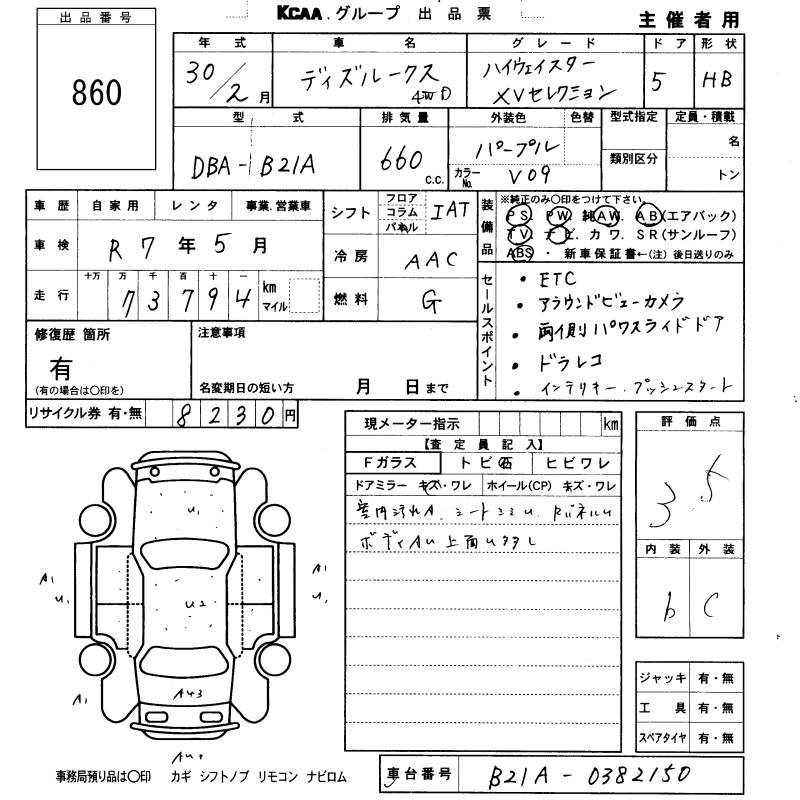 出品番号
860
KCAA.グループ 出品票
主催者用
年式 車名 グレード ドア 形状
30/2月 ディズルークス 4WD ハイウェイスター XVセレクション 5 HB
型式 排気量 外装色 色替 型式指定 定員・積載
DBA-B21A 660 c.c. パープル カラーNo. V09 類別区分 名 トン
車歴 自家用 レンタ 事業.営業車
車検 R7年5月
走行 十万 万 千 百 十 一
73794 km マイル
シフト フロア コラム パネル IAT
冷房 AAC
燃料 G
装備品 ※純正のみ〇印をつけて下さい。
PS. PW. 純AW. AB(エアバック)
TV. ナビ. カワ. SR(サンルーフ)
ABS ・ 新車保証書←(注) 後日送りのみ
セールスポイント
・ETC
・アラウンドビューカメラ
・両側パワスライドドア
・ドラレコ
・インテリキー.プッシュスタート
修復歴 箇所
有
(有の場合は〇印を)
注意事項
名変期日の短い方 月 日まで
リサイクル券 有・無 8230円
現メーター指示 km
【査定員記入】
Fガラス トビ石 ヒビワレ
ドアミラー キズ・ワレ ホイール(CP) キズ・ワレ
室内汚れA. シートシミU.
ボディAU 上面U
評価点
3.5
内装 外装
b C
ジャッキ 有・無
工具 有・無
スペアタイヤ 有・無
U1
U2
A1
U1
A1
U1
A1
AU3
事務局預り品は〇印 カギ シフトノブ リモコン ナビロム
車台番号 B21A-0382150